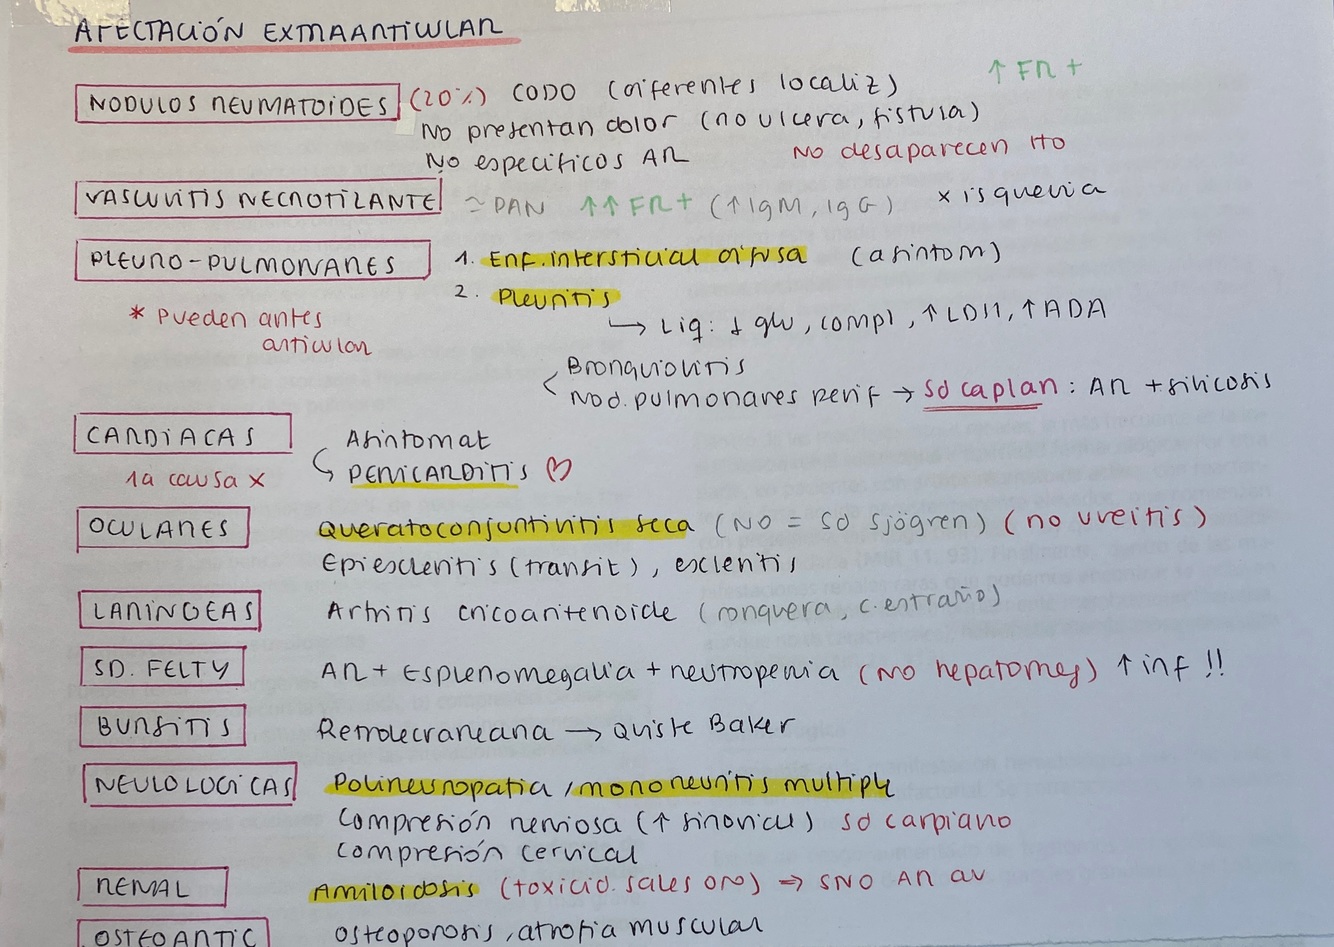 AFECTACIÓN EXTRAARTICULAR
NODULOS REUMATOIDES (20%) CODO (diferentes localiz) ↑ FR +
No presentan dolor (no ulcera, fistula)
No específicos AR No desaparecen tto
VASCULITIS NECROTIZANTE ≃ PAN ↑↑ FR + (↑ IgM, IgG) x isquemia
PLEURO-PULMONARES 1. Enf. intersticial difusa (asintom)
2. Pleuritis
* Pueden antes articular
→ Liq: ↓ glu, compl, ↑ LDH, ↑ ADA
Bronquiolitis
< Nod. pulmonares perif → Sd caplan: AR + silicosis
CARDIACAS Asintomat
1a causa x → PERICARDITIS ♡
OCULARES Queratoconjuntivitis seca (NO = SD Sjögren) (no uveitis)
Epiescleritis (transit), escleritis
LARINGEAS Artritis cricoaritenoide (ronquera, c. extraño)
SD. FELTY AR + Esplenomegalia + neutropenia (no hepatomeg) ↑ inf !!
BURSITIS Retrolecraneana → Quiste Baker
NEULOLOGICAS Polineuropatia / mononeuritis multiple
Compresión nerviosa (↑ sinovial) SD carpiano
Compresión cervical
RENAL Amiloidosis (toxicid. sales oro) ⇒ SNO AR av
OSTEOARTIC osteoporosis, atrofia muscular